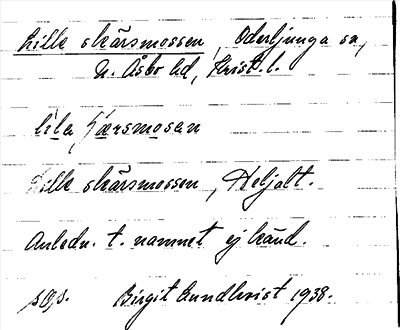 Lille skärsmossen, Oderljunga sn,
N. Åsbo hd, Krist. l.
lila
Lille skärsmossen, Heljalt.
Anledn. t. namnet ej känd.
Birgit Lundkvist 1938.